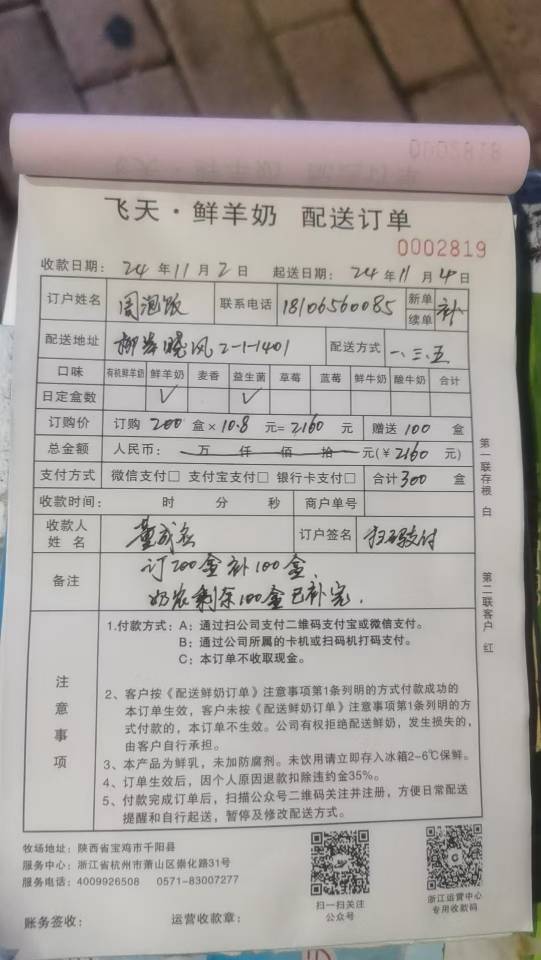 飞天·鲜羊奶 配送订单
0002819
收款日期：24年11月2日 起送日期：24年11月4日
订户姓名 周泡饭 联系电话 18106560085 新单 续单 补
配送地址 柳岸晓风2-1-1401 配送方式 一、三、五
口味 有机鲜羊奶 鲜羊奶 麦香 益生菌 草莓 蓝莓 鲜牛奶 酸牛奶 合计
日定盒数 ✓ ✓
订购价 订购 200 盒×10.8 元=2160 元 赠送 100 盒
总金额 人民币： 万 仟 佰 拾 元(￥2160 元)
支付方式 微信支付□ 支付宝支付□ 银行卡支付□ 合计300 盒
收款时间： 时 分 秒 商户单号
收款人姓名 订户签名 扫码支付
备注 订200盒补100盒
奶农剩余100盒已补完.
注意事项
1.付款方式：A：通过扫公司支付二维码支付宝或微信支付。
B：通过公司所属的卡机或扫码机打码支付。
C：本订单不收取现金。
2、客户按《配送鲜奶订单》注意事项第1条列明的方式付款成功的
本订单生效，客户未按《配送鲜奶订单》注意事项第1条列明的方
式付款的，本订单不生效。公司有权拒绝配送鲜奶，发生损失的，
由客户自行承担。
3、本产品为鲜乳，未加防腐剂。未饮用请立即存入冰箱2-6℃保鲜。
4、订单生效后，因个人原因退款扣除违约金35%。
5、付款完成订单后，扫描公众号二维码关注并注册，方便日常配送
提醒和自行起送，暂停及修改配送方式。
第一联存根 白
第二联客户 红
牧场地址：陕西省宝鸡市千阳县
服务中心：浙江省杭州市萧山区崇化路31号
服务电话：4009926508 0571-83007277
扫一扫关注
公众号
浙江运营中心
专用收款码
账务签收： 运营收款章：